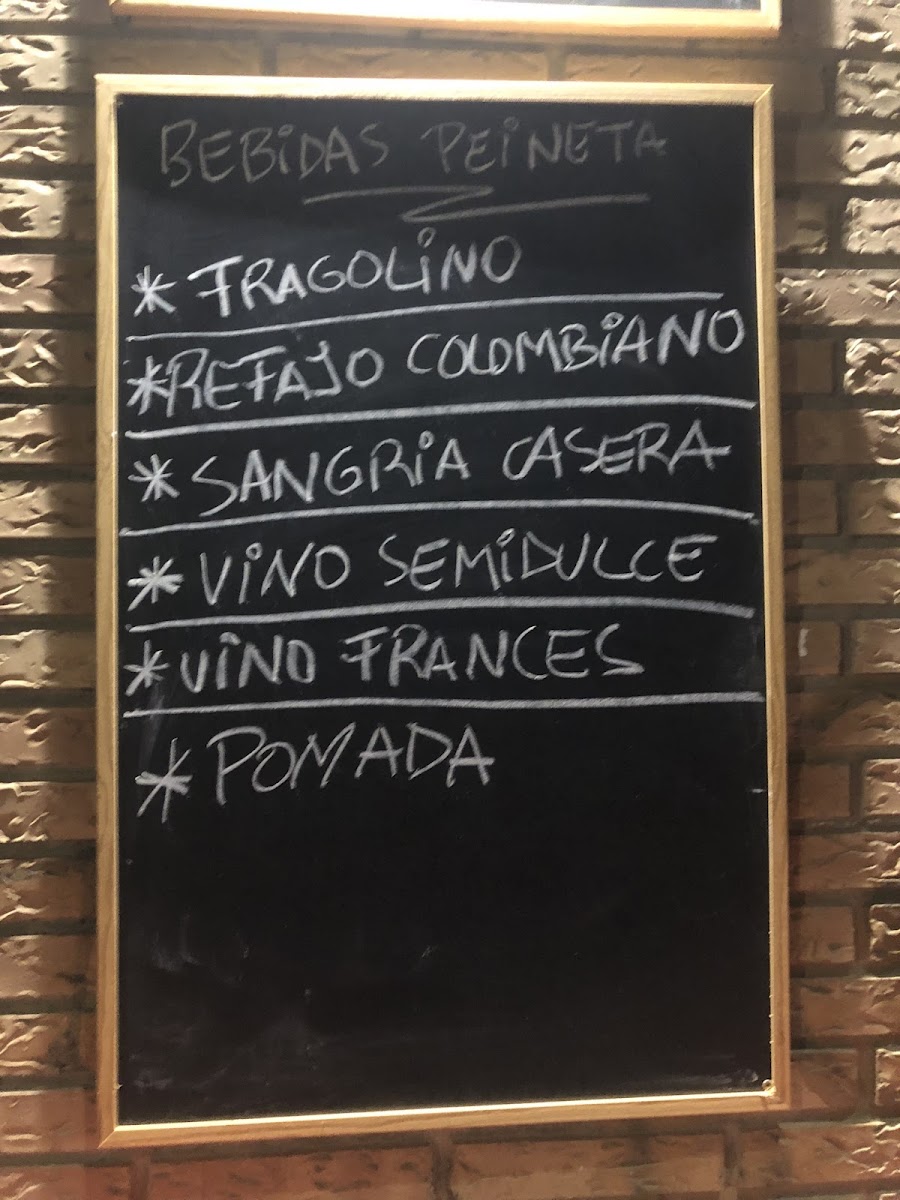 BEBIDAS PEINETA
* FRAGOLINO
* REFAJO COLOMBIANO
* SANGRIA CASERA
* VINO SEMIDULCE
* VINO FRANCES
* POMADA